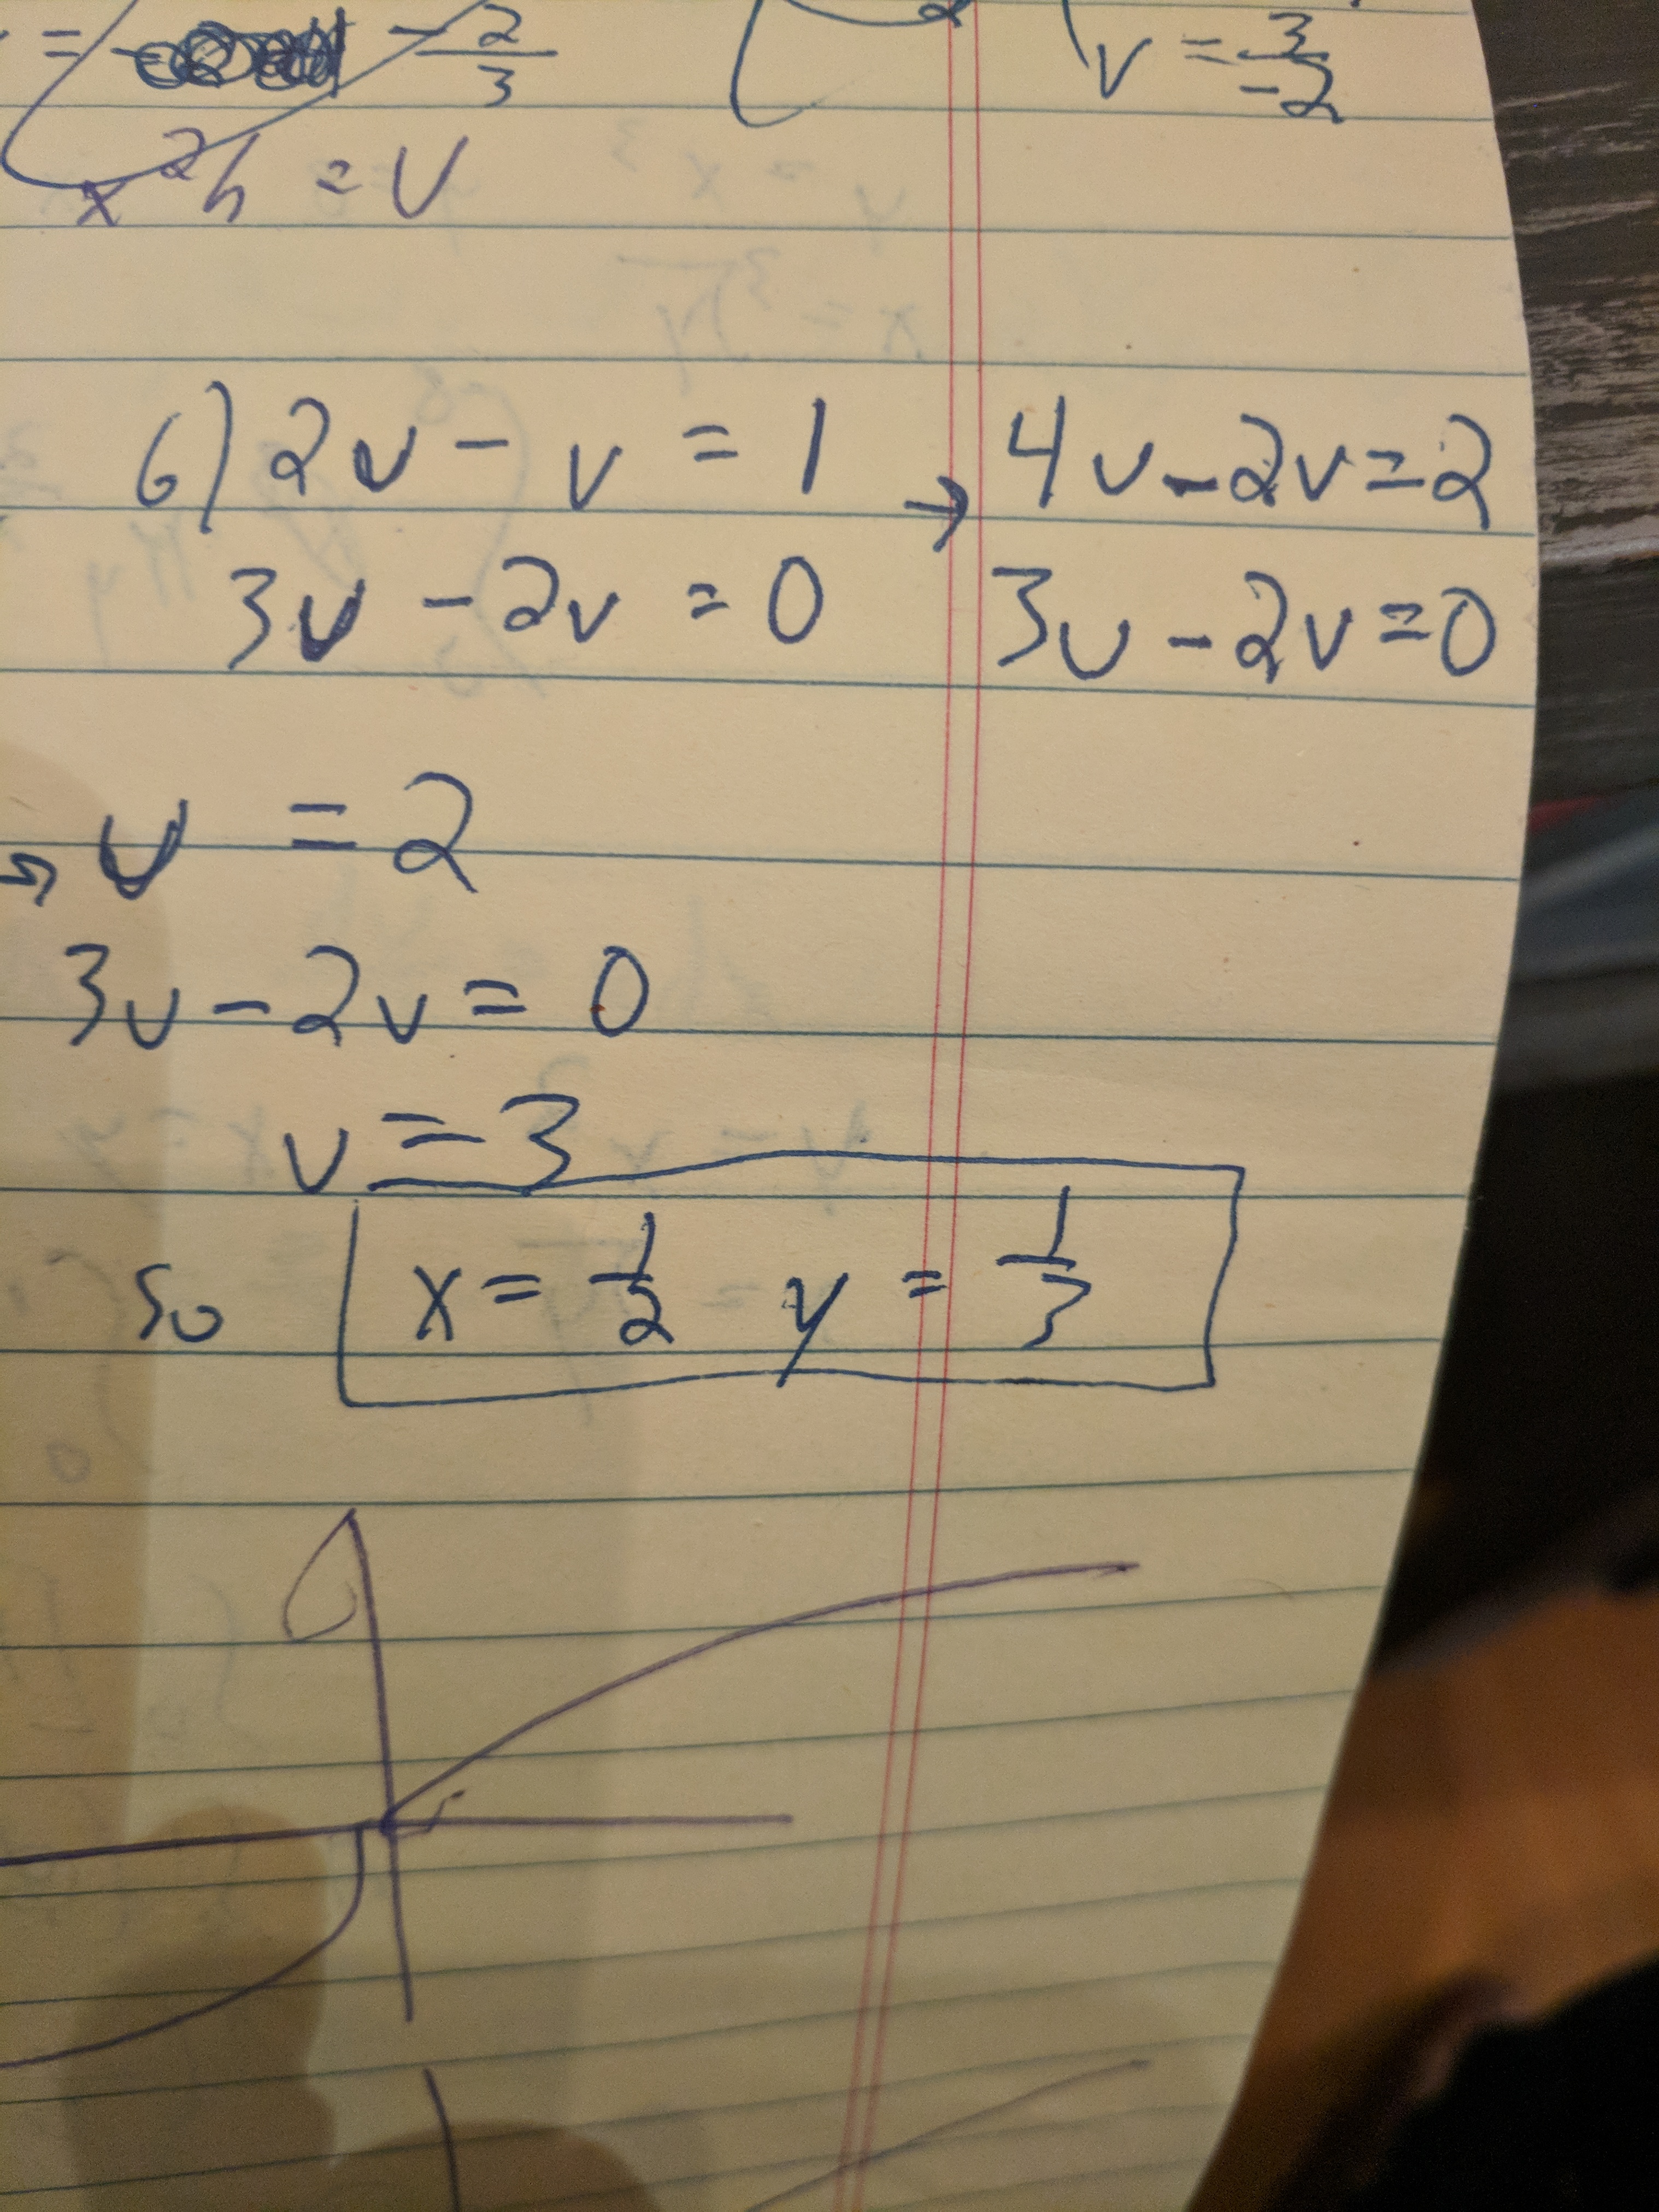 = - 2/3
v = 3/-2
x²h = V
6) 2u - v = 1 → 4u - 2v = 2
3u - 2v = 0 3u - 2v = 0
→ u = 2
3u - 2v = 0
v = 3
so x = 1/2 y = 1/3